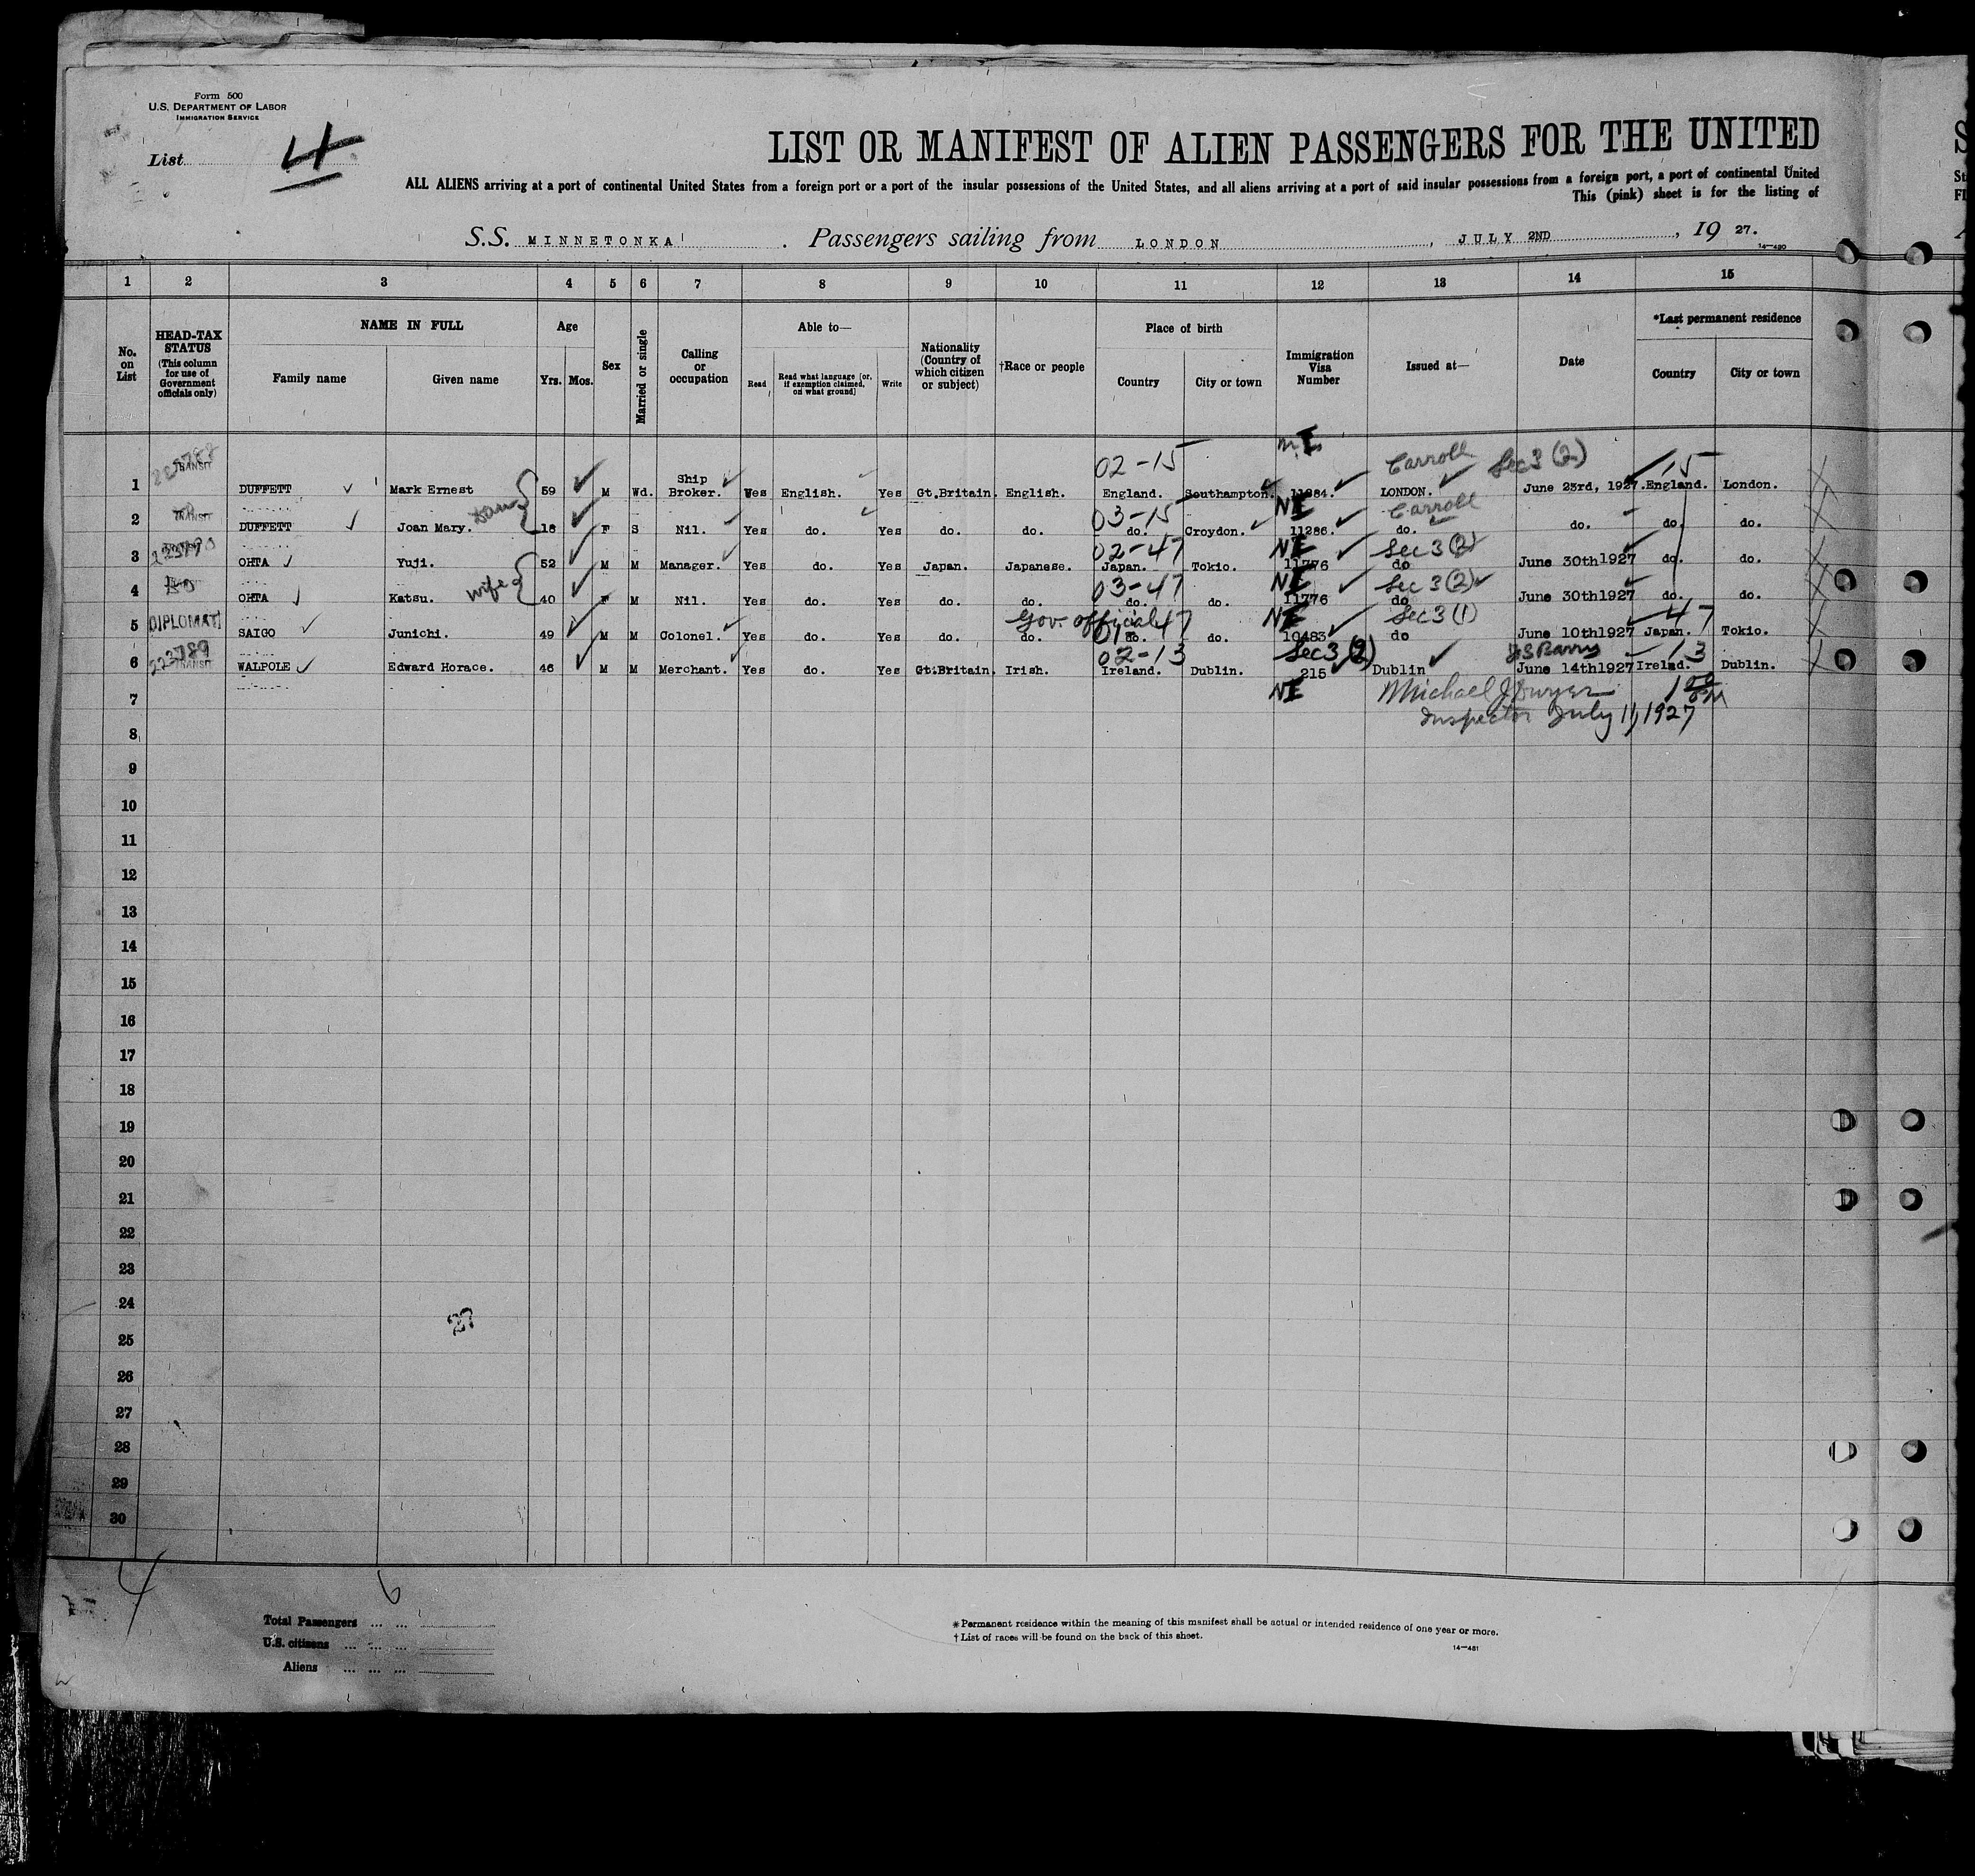 Form 500
U.S. DEPARTMENT OF LABOR
IMMIGRATION SERVICE
List 4
LIST OR MANIFEST OF ALIEN PASSENGERS FOR THE UNITED
ALL ALIENS arriving at a port of continental United States from a foreign port or a port of the insular possessions of the United States, and all aliens arriving at a port of said insular possessions from a foreign port, a port of continental United
This (pink) sheet is for the listing of
S.S. MINNETONKA . Passengers sailing from LONDON , JULY 2ND , 19 27.
14—480
1 2 3 4 5 6 7 8 9 10 11 12 13 14 15
No. on List
HEAD-TAX STATUS (This column for use of Government officials only)
NAME IN FULL
Family name Given name
Age
Yrs. Mos.
Sex
Married or single
Calling or occupation
Able to—
Read Read what language [or, if exemption claimed, on what ground] Write
Nationality (Country of which citizen or subject)
†Race or people
Place of birth
Country City or town
Immigration Visa Number
Issued at—
Date
*Last permanent residence
Country City or town
02-15 Carroll Sec 3 (2) 15
1 TRANSIT DUFFETT Mark Ernest 59 M Wd. Ship Broker. Yes English. Yes Gt.Britain. English. England. Southampton. 11284. LONDON. June 23rd, 1927. England. London.
03-15 NE Carroll
2 TRANSIT DUFFETT Joan Mary. 18 F S Nil. Yes do. Yes do. do. do. Croydon. 11286. do. do. do. do.
02-47 NE Sec 3 (2)
3 OHTA Yuji. 52 M M Manager. Yes do. Yes Japan. Japanese. Japan. Tokio. 11776 do June 30th1927 do. do.
03-47 NE Sec 3 (2)
4 OHTA Katsu. wife 40 F M Nil. Yes do. Yes do. do. do. do. 11776 do June 30th1927 do. do.
Gov. official 47 NE Sec 3 (1) 47
5 DIPLOMAT SAIGO Junichi. 49 M M Colonel. Yes do. Yes do. do. do. do. 10483 do June 10th1927 Japan. Tokio.
02-13 Sec 3 (2) 13
6 223789 TRANSIT WALPOLE Edward Horace. 46 M M Merchant. Yes do. Yes Gt.Britain. Irish. Ireland. Dublin. 215 Dublin June 14th1927 Irelnd. Dublin.
7 NE Michael J Dwyer
Inspector July 11, 1927
8
9
10
11
12
13
14
15
16
17
18
19
20
21
22
23
24
25
26
27
28
29
30
4 6
Total Passengers ... ...
U.S. citizens ... ... ...
Aliens ... ... ...
*Permanent residence within the meaning of this manifest shall be actual or intended residence of one year or more.
†List of races will be found on the back of this sheet.
14—481